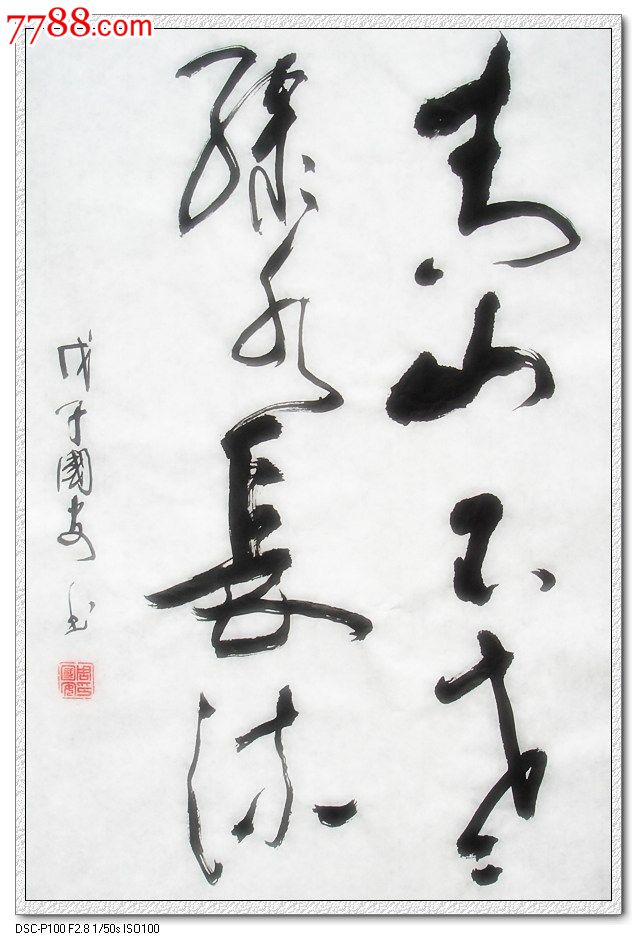 7788.com
青山不老
绿水長流
戊子國安书
DSC-P100 F2.8 1/50s ISO100